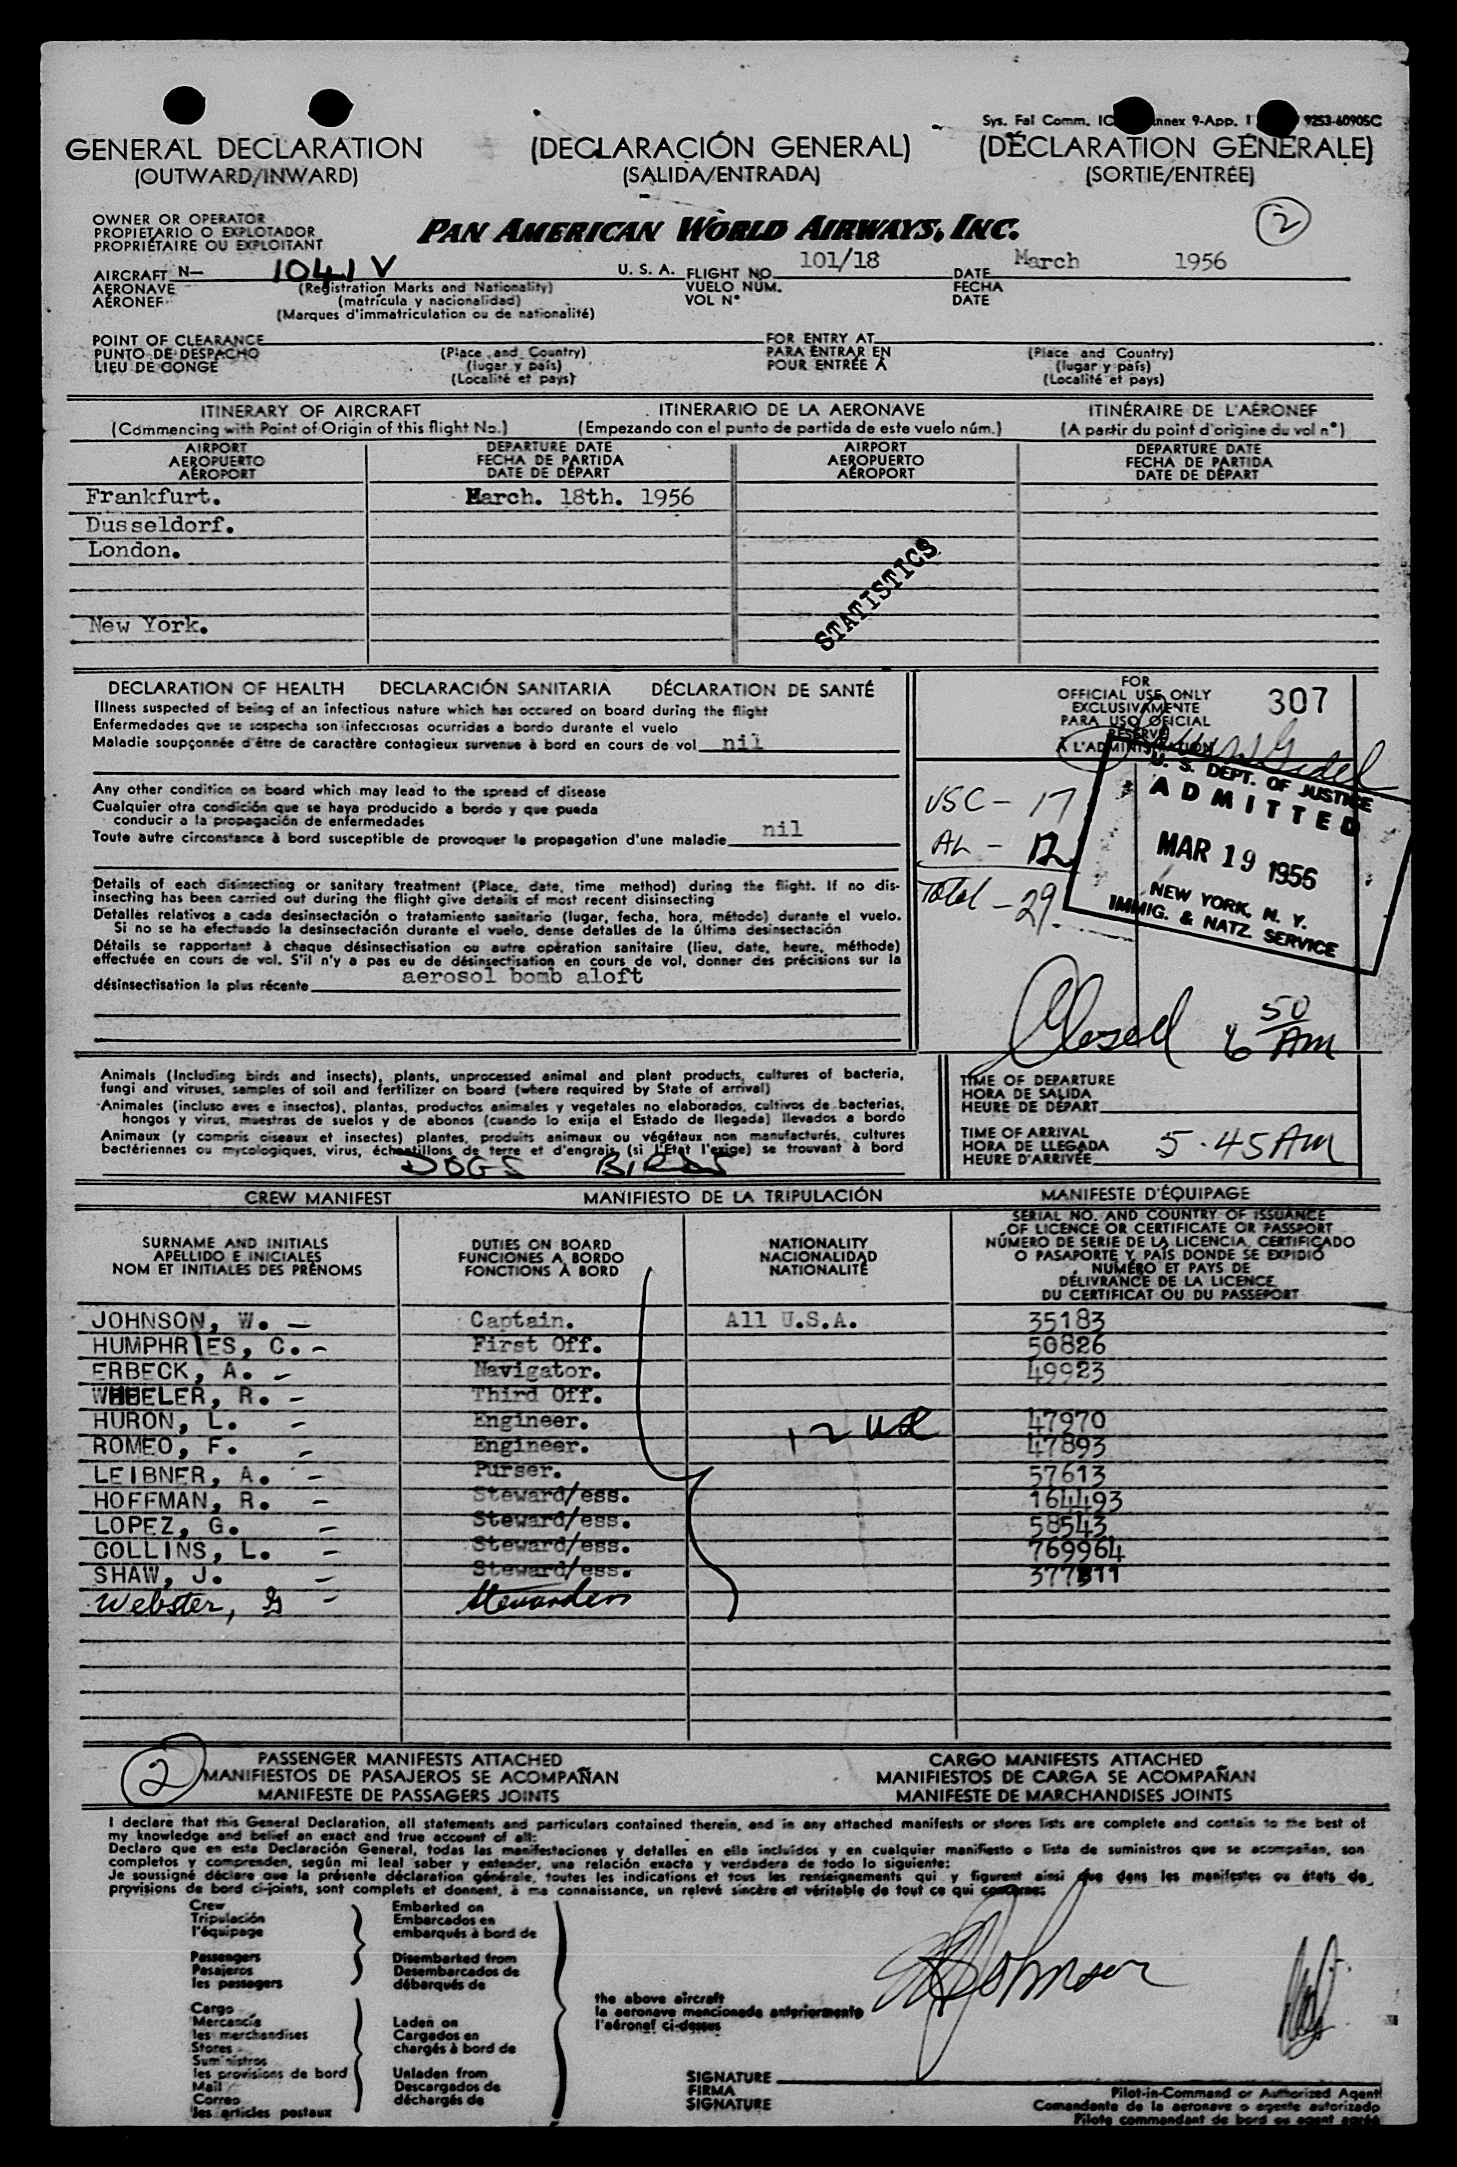 Sys. Fal Comm. IC nnex 9-App. 1 9253-6090SC
GENERAL DECLARATION (DECLARACIÓN GENERAL) (DÉCLARATION GÉNÉRALE)
(OUTWARD/INWARD) (SALIDA/ENTRADA) (SORTIE/ENTRÉE)
OWNER OR OPERATOR
PROPIETARIO O EXPLOTADOR
PROPRIÉTAIRE OU EXPLOITANT
PAN AMERICAN WORLD AIRWAYS, INC.
2
AIRCRAFT N— 1041V U. S. A. FLIGHT NO. 101/18 DATE March 1956
AERONAVE (Registration Marks and Nationality) VUELO NÚM. FECHA
AÉRONEF (matrícula y nacionalidad) VOL N° DATE
(Marques d'immatriculation ou de nationalité)
POINT OF CLEARANCE FOR ENTRY AT
PUNTO DE DESPACHO (Place and Country) PARA ENTRAR EN (Place and Country)
LIEU DE CONGÉ (lugar y país) POUR ENTRÉE À (lugar y país)
(Localité et pays) (Localité et pays)
ITINERARY OF AIRCRAFT ITINERARIO DE LA AERONAVE ITINÉRAIRE DE L'AÉRONEF
(Commencing with Point of Origin of this flight No.) (Empezando con el punto de partida de este vuelo núm.) (A partir du point d'origine du vol n°)
AIRPORT DEPARTURE DATE AIRPORT DEPARTURE DATE
AEROPUERTO FECHA DE PARTIDA AEROPUERTO FECHA DE PARTIDA
AÉROPORT DATE DE DÉPART AÉROPORT DATE DE DÉPART
Frankfurt. March. 18th. 1956
Dusseldorf.
London.
STATISTICS
New York.
DECLARATION OF HEALTH DECLARACIÓN SANITARIA DÉCLARATION DE SANTÉ
Illness suspected of being of an infectious nature which has occured on board during the flight
Enfermedades que se sospecha son infecciosas ocurridas a bordo durante el vuelo
Maladie soupçonnée d'être de caractère contagieux survenue à bord en cours de vol nil
Any other condition on board which may lead to the spread of disease
Cualquier otra condición que se haya producido a bordo y que pueda
conducir a la propagación de enfermedades
Toute autre circonstance à bord susceptible de provoquer la propagation d'une maladie nil
Details of each disinsecting or sanitary treatment (Place, date, time method) during the flight. If no dis-
insecting has been carried out during the flight give details of most recent disinsecting
Detalles relativos a cada desinsectación o tratamiento sanitario (lugar, fecha, hora, método) durante el vuelo.
Si no se ha efectuado la desinsectación durante el vuelo, dense detalles de la última desinsectación
Détails se rapportant à chaque désinsectisation ou autre opération sanitaire (lieu, date, heure, méthode)
effectuée en cours de vol. S'il n'y a pas eu de désinsectisation en cours de vol, donner des précisions sur la
désinsectisation la plus récente aerosol bomb aloft
FOR
OFFICIAL USE ONLY
EXCLUSIVAMENTE
PARA USO OFICIAL
RÉSERVÉ
À L'ADMINISTRATION
307
U. S. DEPT. OF JUSTICE
ADMITTED
MAR 19 1956
NEW YORK, N. Y.
IMMIG. & NATZ. SERVICE
USC - 17
AL - 12
Total - 29
Closed 6 50 AM
Animals (Including birds and insects), plants, unprocessed animal and plant products, cultures of bacteria,
fungi and viruses, samples of soil and fertilizer on board (where required by State of arrival)
Animales (incluso aves e insectos), plantas, productos animales y vegetales no elaborados, cultivos de bacterias,
hongos y virus, muestras de suelos y de abonos (cuando lo exija el Estado de llegada) llevados a bordo
Animaux (y compris oiseaux et insectes) plantes, produits animaux ou végétaux non manufacturés, cultures
bactériennes ou mycologiques, virus, échantillons de terre et d'engrais, (si l'Etat l'exige) se trouvant à bord
DOGS BIRDS
TIME OF DEPARTURE
HORA DE SALIDA
HEURE DE DÉPART
TIME OF ARRIVAL
HORA DE LLEGADA
HEURE D'ARRIVÉE 5.45 AM
CREW MANIFEST MANIFIESTO DE LA TRIPULACIÓN MANIFESTE D'ÉQUIPAGE
SURNAME AND INITIALS
APELLIDO E INICIALES
NOM ET INITIALES DES PRÉNOMS
DUTIES ON BOARD
FUNCIONES A BORDO
FONCTIONS À BORD
NATIONALITY
NACIONALIDAD
NATIONALITÉ
SERIAL NO. AND COUNTRY OF ISSUANCE
OF LICENCE OR CERTIFICATE OR PASSPORT
NÚMERO DE SERIE DE LA LICENCIA, CERTIFICADO
O PASAPORTE Y PAÍS DONDE SE EXPIDIÓ
NUMÉRO ET PAYS DE
DÉLIVRANCE DE LA LICENCE
DU CERTIFICAT OU DU PASSEPORT
JOHNSON, W. — Captain. All U.S.A. 35183
HUMPHRIES, C. - First Off. 50826
ERBECK, A. - Navigator. 49923
WHEELER, R. - Third Off.
HURON, L. - Engineer. 12 US 47970
ROMEO, F. - Engineer. 47893
LEIBNER, A. - Purser. 57613
HOFFMAN, R. - Steward/ess. 164493
LOPEZ, G. - Steward/ess. 58543
COLLINS, L. - Steward/ess. 769964
SHAW, J. - Steward/ess. 377811
Webster, G - Stewardess
2
PASSENGER MANIFESTS ATTACHED CARGO MANIFESTS ATTACHED
MANIFIESTOS DE PASAJEROS SE ACOMPAÑAN MANIFIESTOS DE CARGA SE ACOMPAÑAN
MANIFESTE DE PASSAGERS JOINTS MANIFESTE DE MARCHANDISES JOINTS
I declare that this General Declaration, all statements and particulars contained therein, and in any attached manifests or stores lists are complete and contain to the best of
my knowledge and belief an exact and true account of all:
Declaro que en esta Declaración General, todas las manifestaciones y detalles en ella incluidos y en cualquier manifiesto o lista de suministros que se acompañan, son
completos y comprenden, según mi leal saber y entender, una relación exacta y verdadera de todo lo siguiente:
Je soussigné déclare que la présente déclaration générale, toutes les indications et tous les renseignements qui y figurent ainsi que dans les manifestes ou états de
provisions de bord ci-joints, sont complets et donnent, à ma connaissance, un relevé sincère et véritable de tout ce qui concerne:
Crew Embarked on
Tripulación Embarcados en
l'équipage embarqués à bord de
Passengers Disembarked from
Pasajeros Desembarcados de
les passagers débarqués de
the above aircraft
la aeronave mencionada anteriormente
l'aéronef ci-dessus
Cargo
Mercancía Laden on
les merchandises Cargados en
Stores chargés à bord de
Suministros
les provisions de bord Unladen from
Mail Descargados de
Correo déchargés de
les articles postaux
Johnson
SIGNATURE
FIRMA
SIGNATURE
Pilot-in-Command or Authorized Agent
Comandante de la aeronave o agente autorizado
Pilote commandant de bord ou agent agréé